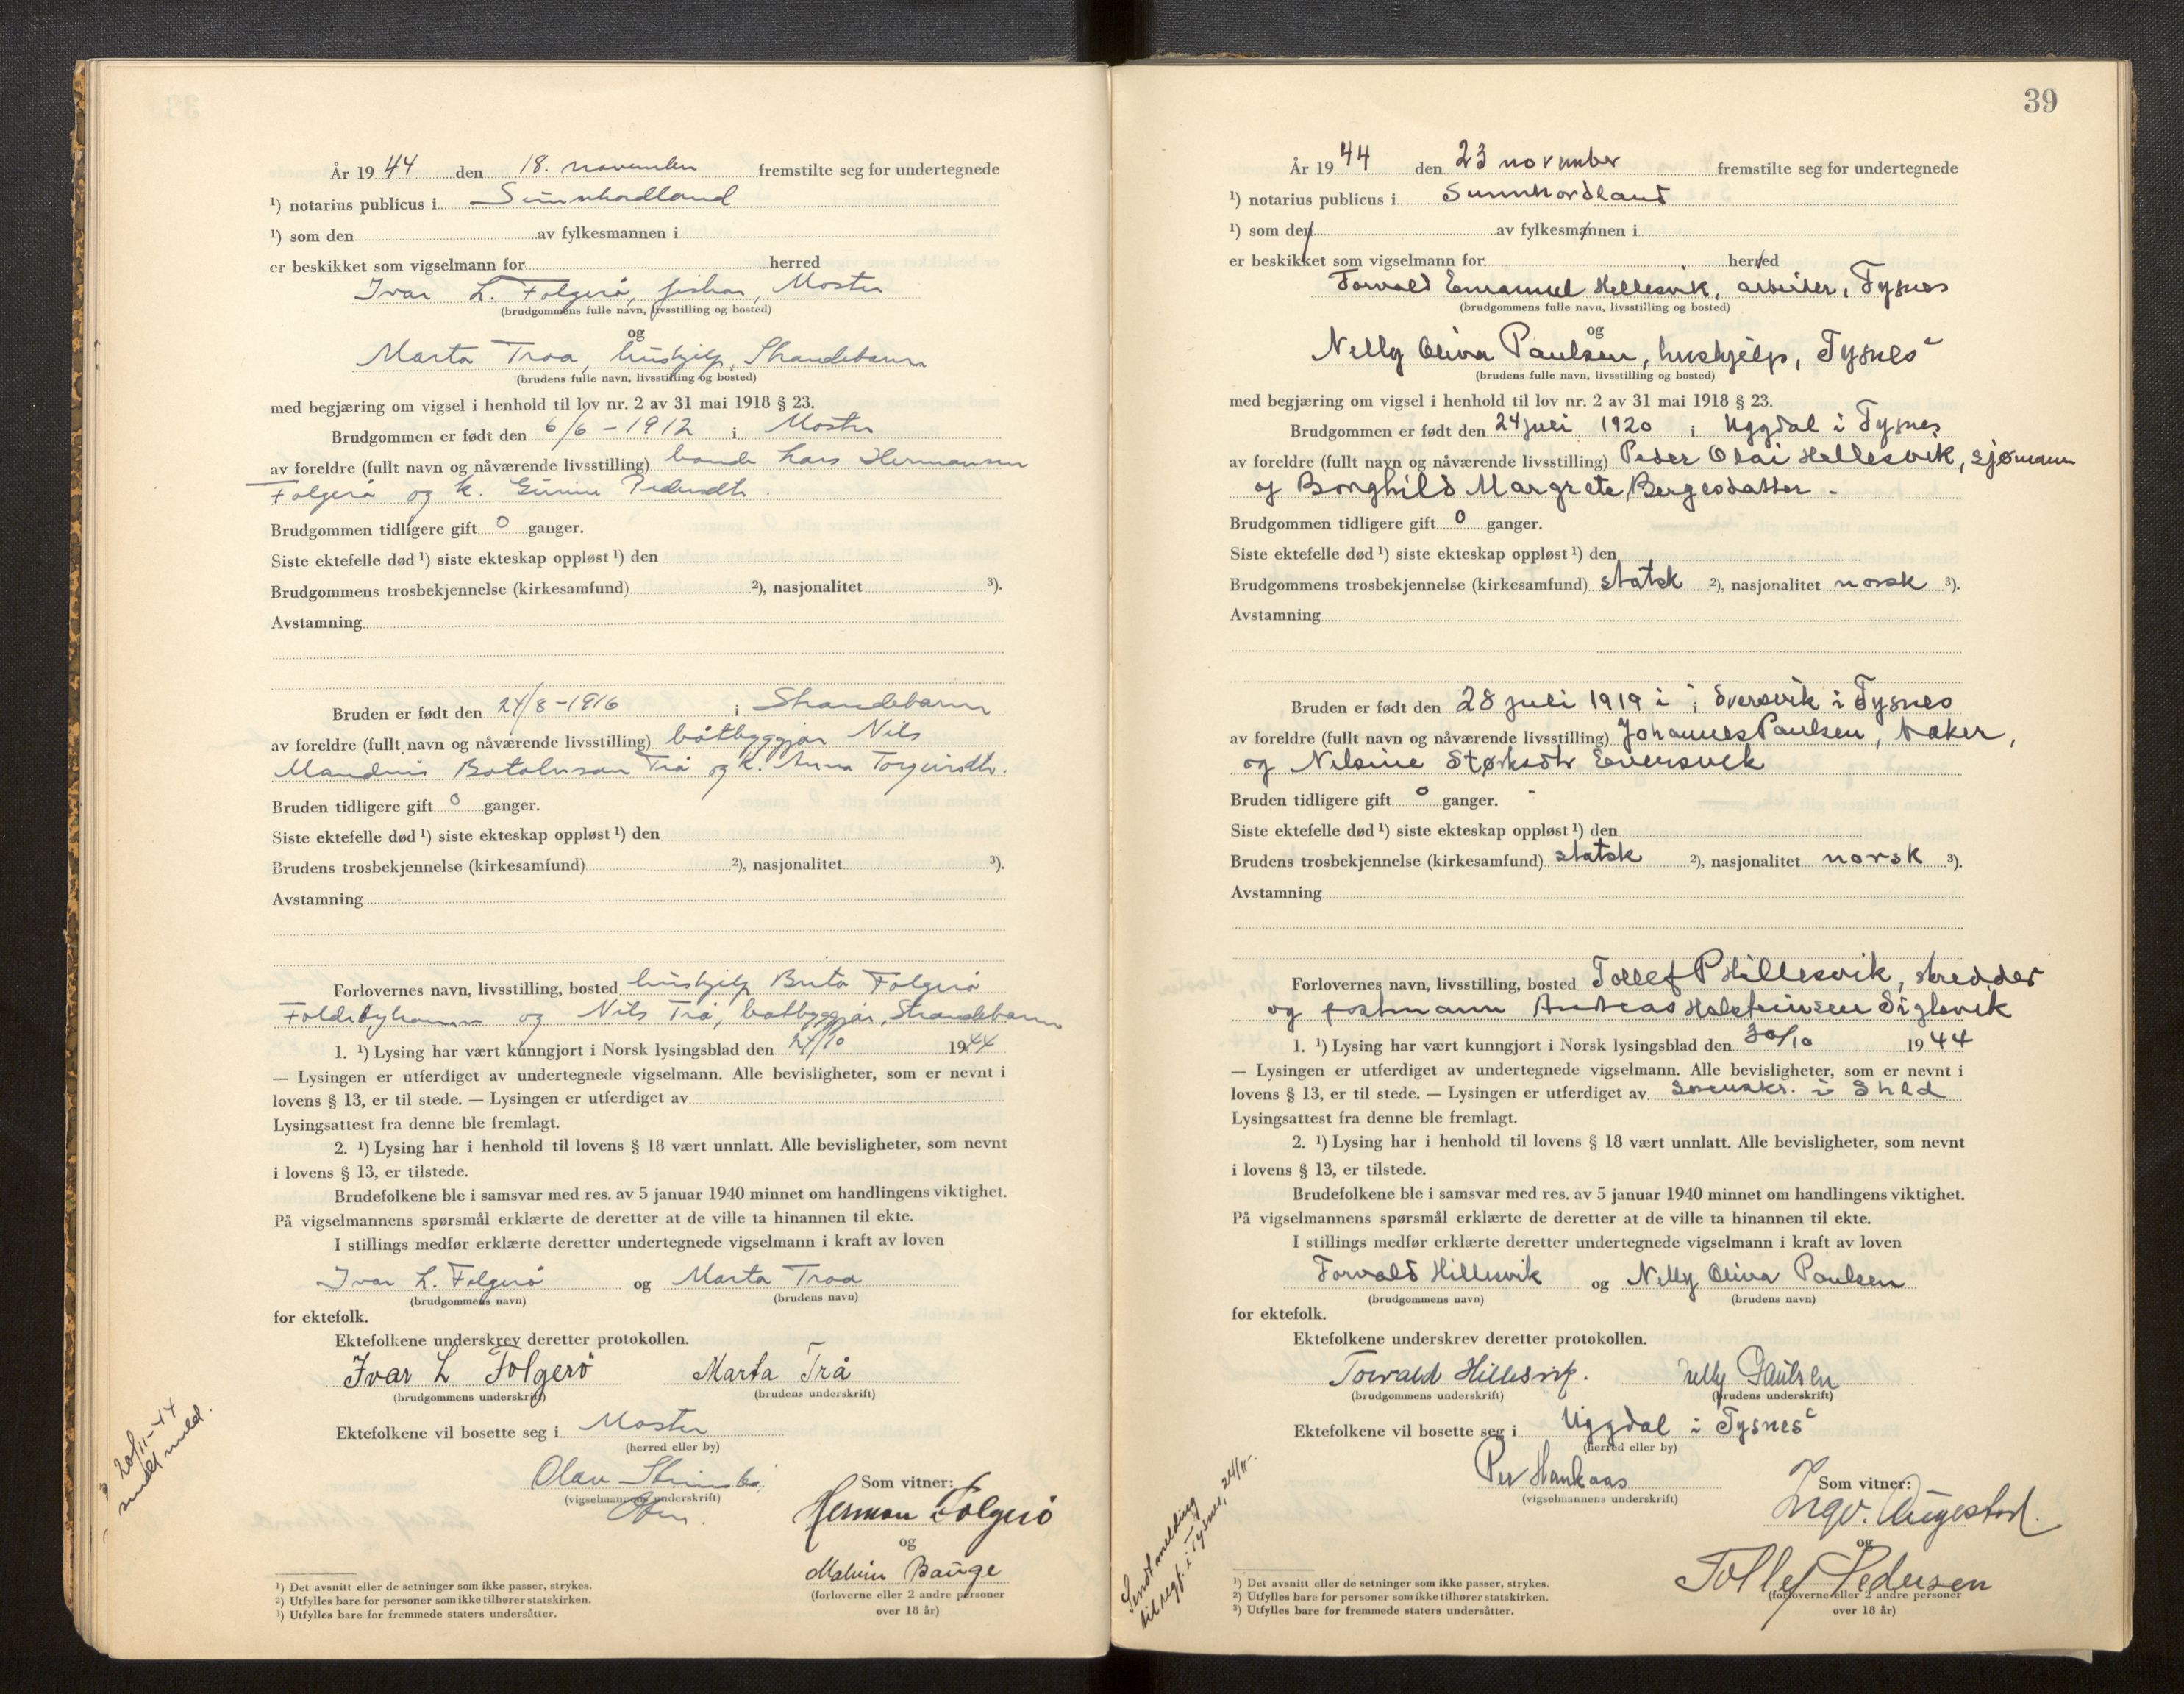 År 1944 den 18. november fremstilte seg for undertegnede
¹) notarius publicus i Sunnhordland
¹) som den av fylkesmannen i
er beskikket som vigselmann for herred
Ivar L. Folgerø, fiskar, Moster
(brudgommens fulle navn, livsstilling og bosted)
og
Marta Traa, hushjelp, Strandebarm
(brudens fulle navn, livsstilling og bosted)
med begjæring om vigsel i henhold til lov nr. 2 av 31 mai 1918 § 23.
Brudgommen er født den 6/6 - 1912 i Moster
av foreldre (fullt navn og nåværende livsstilling) bonde Lars Hermansen
Folgerø og k.
Brudgommen tidligere gift 0 ganger.
Siste ektefelle død ¹) siste ekteskap oppløst ¹) den
Brudgommens trosbekjennelse (kirkesamfund) ²), nasjonalitet ³).
Avstamning
Bruden er født den 24/8 - 1916 i Strandebarm
av foreldre (fullt navn og nåværende livsstilling) båtbyggjar Nils
Trå og k. Anna
Bruden tidligere gift 0 ganger.
Siste ektefelle død ¹) siste ekteskap oppløst ¹) den
Brudens trosbekjennelse (kirkesamfund) ²), nasjonalitet ³).
Avstamning
Forlovernes navn, livsstilling, bosted hushjelp Brita Folgerø
og Nils Trå, båtbyggjar, Strandebarm
1. ¹) Lysing har vært kunngjort i Norsk lysingsblad den 24/10 1944
— Lysingen er utferdiget av undertegnede vigselmann. Alle bevisligheter, som er nevnt i
lovens § 13, er til stede. — Lysingen er utferdiget av
Lysingsattest fra denne ble fremlagt.
2. ¹) Lysing har i henhold til lovens § 18 vært unnlatt. Alle bevisligheter, som nevnt
i lovens § 13, er tilstede.
Brudefolkene ble i samsvar med res. av 5 januar 1940 minnet om handlingens viktighet.
På vigselmannens spørsmål erklærte de deretter at de ville ta hinannen til ekte.
I stillings medfør erklærte deretter undertegnede vigselmann i kraft av loven
Ivar L. Folgerø og Marta Traa
(brudgommens navn) (brudens navn)
for ektefolk.
Ektefolkene underskrev deretter protokollen.
Ivar L Folgerö Marta Trå
(brudgommens underskrift) (brudens underskrift)
Ektefolkene vil bosette seg i Moster
(herred eller by)
Olav
(vigselmannens underskrift)
Som vitner:
Herman Folgerö
og
Malvin Bauge
(forloverne eller 2 andre personer
over 18 år)
20/11-44
sendt meld.
¹) Det avsnitt eller de setninger som ikke passer, strykes.
²) Utfylles bare for personer som ikke tilhører statskirken.
³) Utfylles bare for fremmede staters undersåtter.
39
År 1944 den 23 november fremstilte seg for undertegnede
¹) notarius publicus i Sunnhordland
¹) som den av fylkesmannen i
er beskikket som vigselmann for herred
Torvald Emanuel Hillesvik, arbeider, Tysnes
(brudgommens fulle navn, livsstilling og bosted)
og
Nelly Oliva Paulsen, hushjelp, Tysnes
(brudens fulle navn, livsstilling og bosted)
med begjæring om vigsel i henhold til lov nr. 2 av 31 mai 1918 § 23.
Brudgommen er født den 24 juli 1920 i Uggdal i Tysnes
av foreldre (fullt navn og nåværende livsstilling) Peder Olai Hillesvik, sjømann
og Borghild Margrete Bergesdatter -
Brudgommen tidligere gift 0 ganger.
Siste ektefelle død ¹) siste ekteskap oppløst ¹) den
Brudgommens trosbekjennelse (kirkesamfund) statsk ²), nasjonalitet norsk ³).
Avstamning
Bruden er født den 28 juli 1919 i i Eversvik i Tysnes
av foreldre (fullt navn og nåværende livsstilling) Johannes Paulsen, baker,
og Nilsine Størksdtr Eversvik
Bruden tidligere gift 0 ganger.
Siste ektefelle død ¹) siste ekteskap oppløst ¹) den
Brudens trosbekjennelse (kirkesamfund) statsk ²), nasjonalitet norsk ³).
Avstamning
Forlovernes navn, livsstilling, bosted Tollef P Hillesvik, skredder
og postmann Andreas Halsteinsen Siglevik
1. ¹) Lysing har vært kunngjort i Norsk lysingsblad den 30/10 1944
— Lysingen er utferdiget av undertegnede vigselmann. Alle bevisligheter, som er nevnt i
lovens § 13, er til stede. — Lysingen er utferdiget av sorenskr. i Shld
Lysingsattest fra denne ble fremlagt.
2. ¹) Lysing har i henhold til lovens § 18 vært unnlatt. Alle bevisligheter, som nevnt
i lovens § 13, er tilstede.
Brudefolkene ble i samsvar med res. av 5 januar 1940 minnet om handlingens viktighet.
På vigselmannens spørsmål erklærte de deretter at de ville ta hinannen til ekte.
I stillings medfør erklærte deretter undertegnede vigselmann i kraft av loven
Torvald Hillesvik og Nelly Oliva Paulsen
(brudgommens navn) (brudens navn)
for ektefolk.
Ektefolkene underskrev deretter protokollen.
Torvald Hillesvik. Nelly Paulsen
(brudgommens underskrift) (brudens underskrift)
Ektefolkene vil bosette seg i Uggdal i Tysnes
(herred eller by)
Per Haukaas
(vigselmannens underskrift)
Som vitner:
Ingv. Augestad.
og
Tollef Pedersen
(forloverne eller 2 andre personer
over 18 år)
Sendt melding
til regf. i Tysnes, 24/11.
¹) Det avsnitt eller de setninger som ikke passer, strykes.
²) Utfylles bare for personer som ikke tilhører statskirken.
³) Utfylles bare for fremmede staters undersåtter.